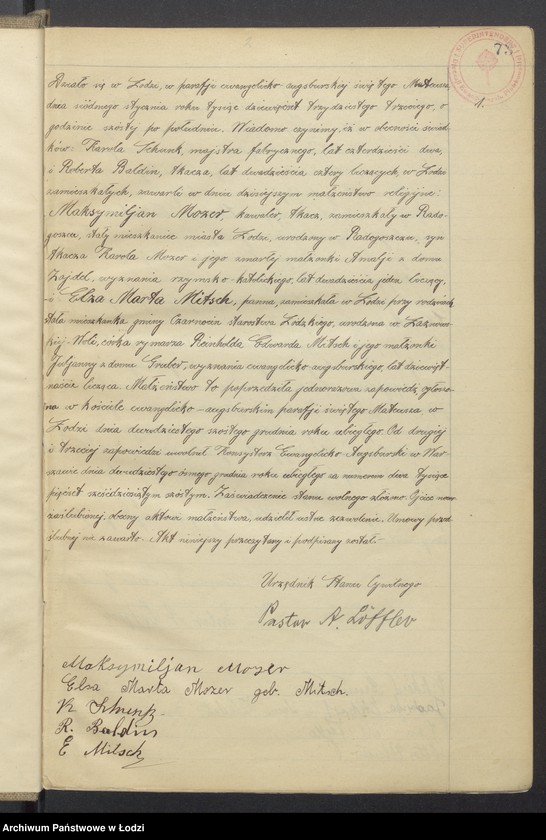 73
1.
Działo się w Łodzi, w parafji ewangelicko-augsburskiej świętego Mateusza
dnia siódmego stycznia roku tysiąc dziewięćset trzydziestego trzeciego, o
godzinie szóstej po południu. Wiadomo czynimy, iż w obecności świad-
ków: Karola Schunk, majstra fabrycznego, lat czterdzieści dwa,
i Roberta Baldin, tkacza, lat dwadzieścia cztery liczących, w Łodzi
zamieszkałych, zawarto w dniu dzisiejszym małżeństwo religijne:
Maksymiljan Mozer kawaler, tkacz, zamieszkały w Rado-
goszczu, stały mieszkaniec miasta Łodzi, urodzony w Radogoszczu, syn
tkacza Karola Mozer i jego zmarłej małżonki Amalji z domu
Zajdel, wyznania rzymsko-katolickiego, lat dwadzieścia jeden liczący,
i Elza Marta Mitsch, panna, zamieszkała w Łodzi przy rodzicach
stała mieszkanka gminy Czarnocin starostwa Łódzkiego, urodzona w Łaznow-
skiej-Woli, córka rymarza Reinholda Edwarda Mitsch i jego małżonki
Juljanny z domu Gruber, wyznania ewangelicko-augsburskiego, lat dziewięt-
naście licząca. Małżeństwo to poprzedziła jednorazowa zapowiedź, ogłoszo-
na w kościele ewangelicko-augsburskim parafji świętego Mateusza, w
Łodzi dnia dwudziestego szóstego grudnia roku ubiegłego. Od drugiej
i trzeciej zapowiedzi uwolnił Konsystorz Ewangelicko Augsburski w War-
szawie dnia dwudziestego ósmego grudnia roku ubiegłego za numerem dwa tysiące
pięćset sześćdziesiątym szóstym. Zaświadczenie stanu wolnego złożono. Ojciec nowo
zaślubionej, obecny aktowi małżeństwa, udzielił ustne zezwolenie. Umowy przed
ślubnej nie zawarto. Akt niniejszy przeczytany i podpisany został.
Urzędnik Stanu Cywilnego
Pastor A. Löffler
Maksymiljan Mozer
Elza Marta Mozer geb. Mitsch.
K. Schunk
R. Baldin
E Mitsch
Archiwum Państwowe w Łodzi